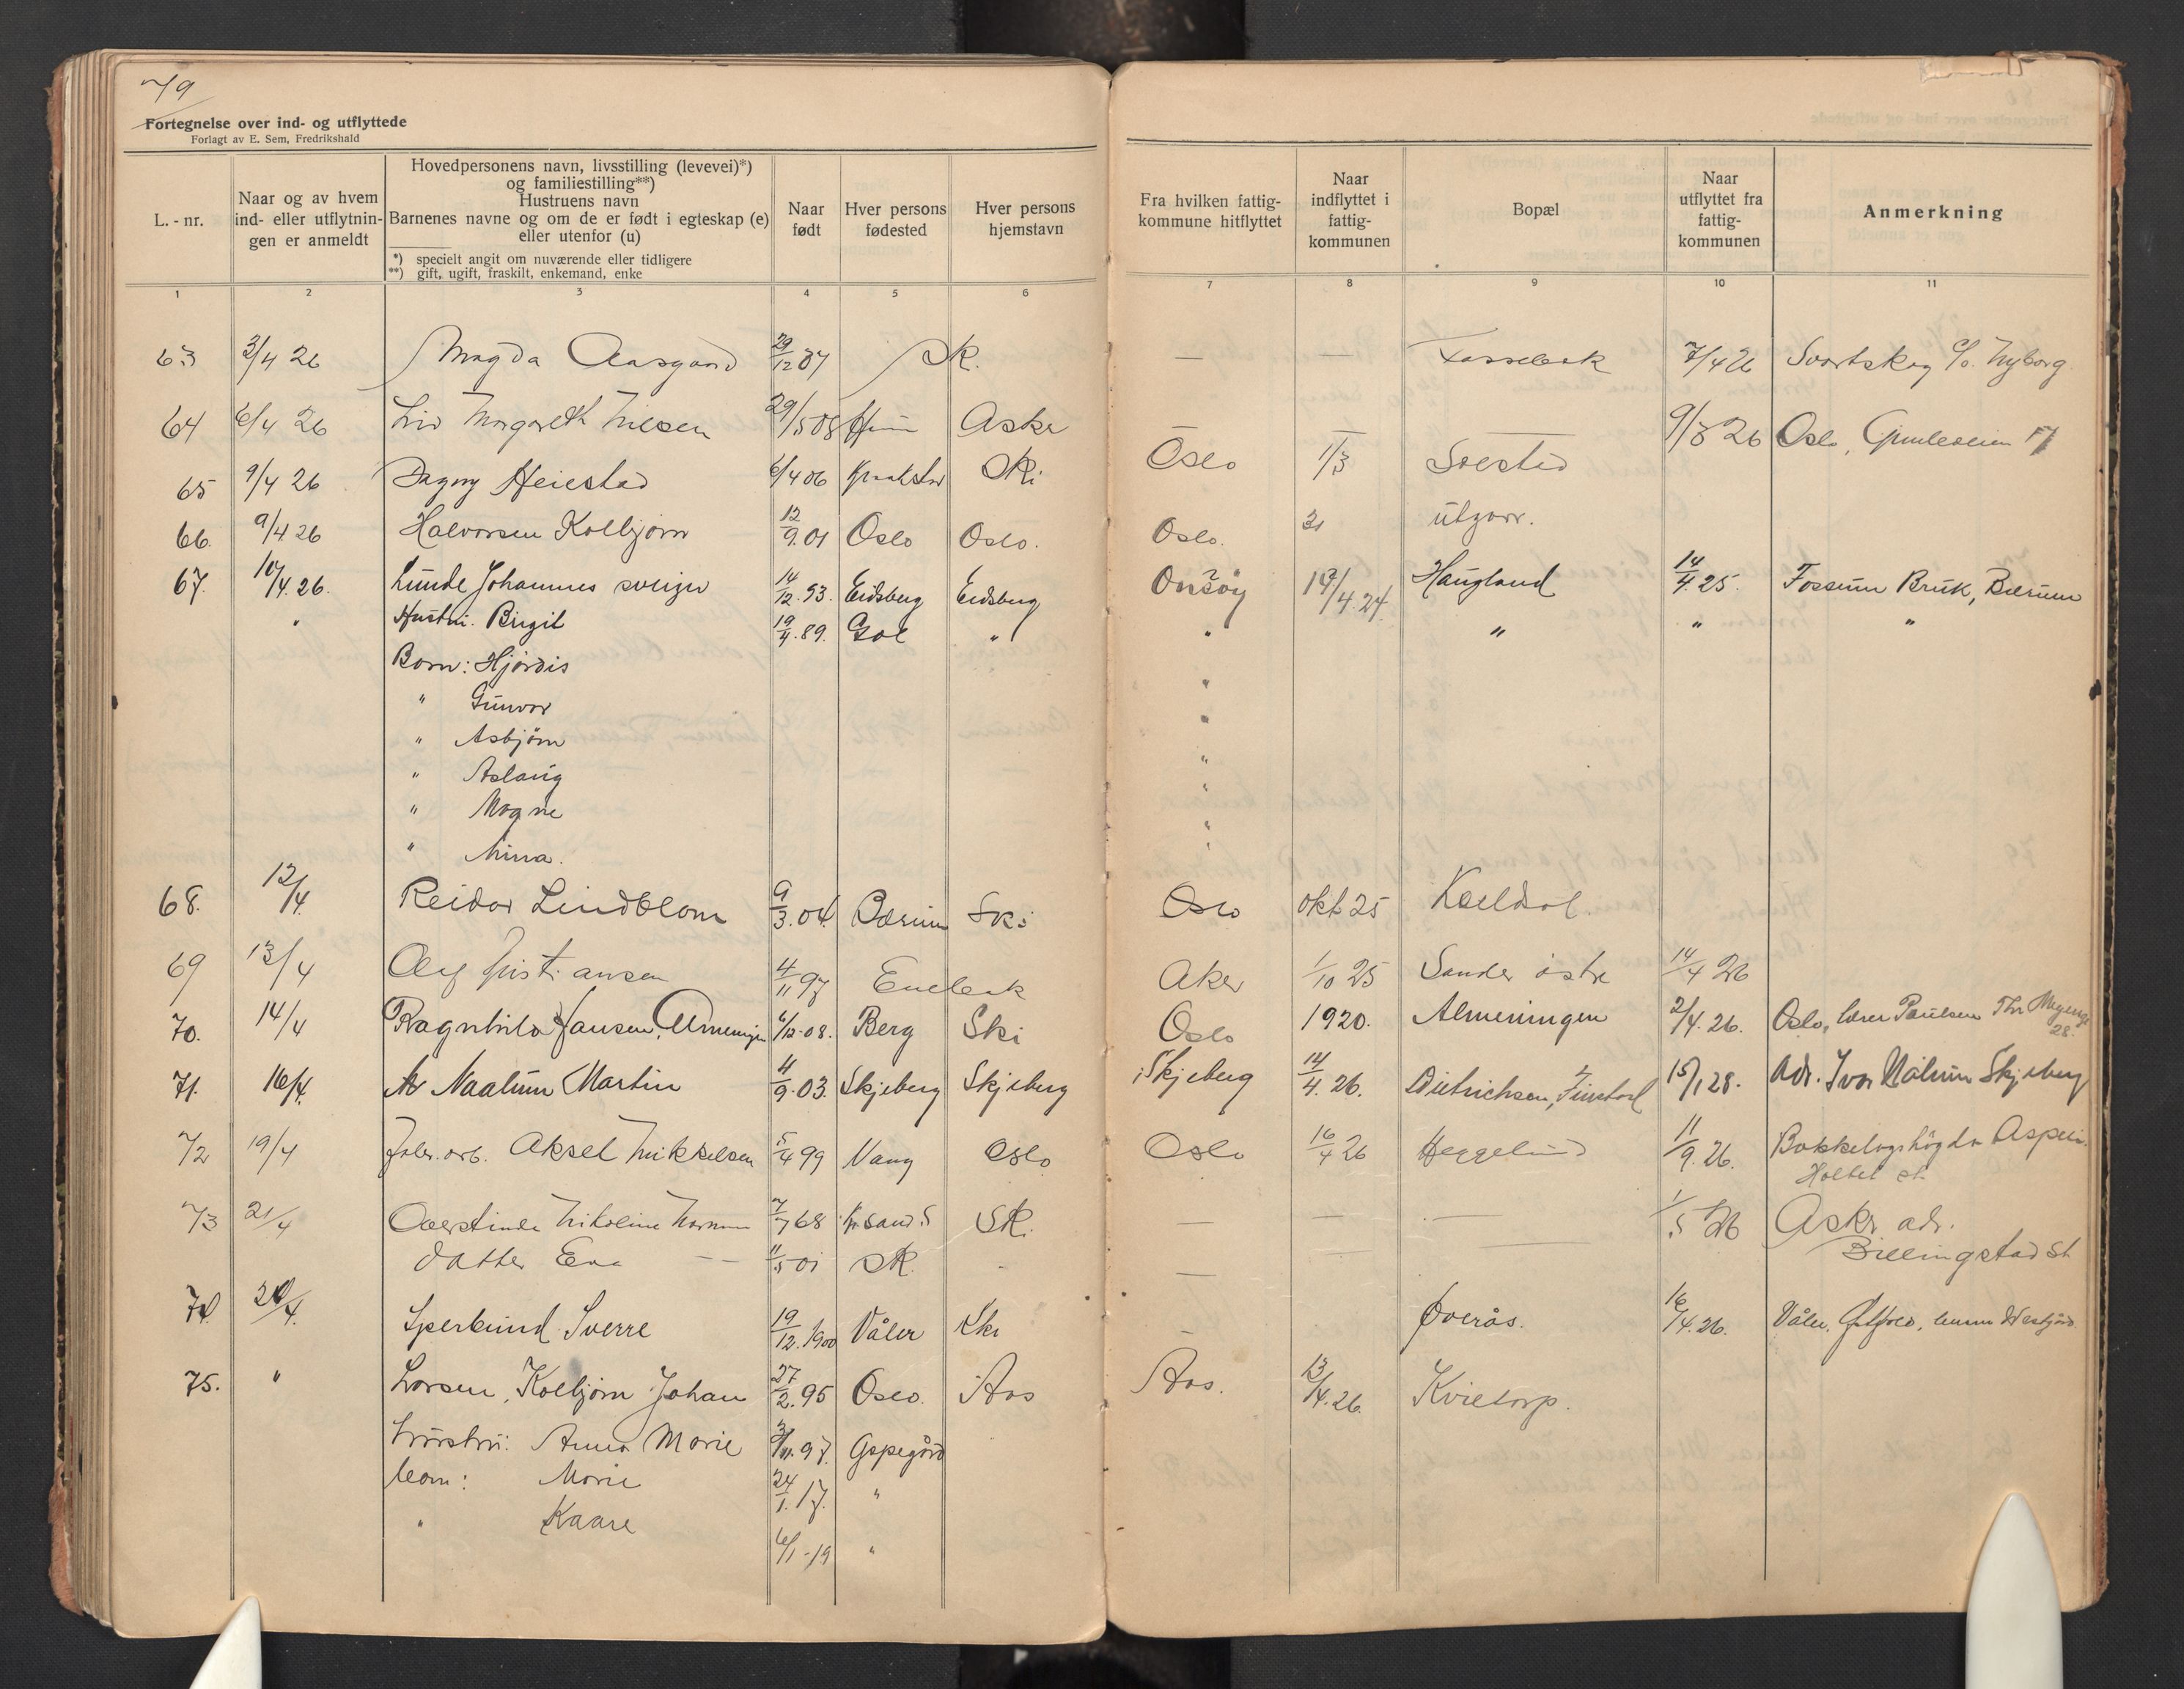 79
Fortegnelse over ind- og utflyttede
Forlagt av E. Sem, Fredrikshald
L. - nr.
Naar og av hvem
ind- eller utflytnin-
gen er anmeldt
Hovedpersonens navn, livsstilling (levevei)*)
og familiestilling**)
Hustruens navn
Barnenes navne og om de er født i egteskap (e)
eller utenfor (u)
*) specielt angit om nuværende eller tidligere
**) gift, ugift, fraskilt, enkemand, enke
Naar
født
Hver persons
fødested
Hver persons
hjemstavn
Fra hvilken fattig-
kommune hitflyttet
Naar
indflyttet i
fattig-
kommunen
Bopæl
Naar
utflyttet fra
fattig-
kommunen
Anmerkning
1 2 3 4 5 6 7 8 9 10 11
63 3/4 26 Magda Aasgaard 29/12 07 Sk. — — 7/4 26 Svartskog c/o. Nyborg
64 6/4 26 Liv Margreth Nilsen 29/5 08 Asker — — 9/3 26 Oslo,
65 9/4 26 Dagny Heiestad 6/4 06 Kraakstad Ski Oslo 1/3 Solestad
66. 9/4 26 Halvorsen Kolbjørn 12/9.01 Oslo Oslo. Oslo. utgaar.
67. 10/4.26. Lunde Johannes sveiger 14/12.93. Eidsberg Eidsberg Onsøy 14/4.24. Haugland 14/4.25. Fossum Bruk, Bærum
" Hustru. Birgit 19/4.89. Gol " " " " "
Barn: Hjørdis "
" Gunvor "
" Asbjørn "
" Aslaug "
" Magne "
" Minna. "
68. 12/4. Reidar Lindblom 9/3.04. Bærum Ski Oslo okt 25 Kjeldal.
69 13/4 Olaf Kristiansen 4/11 97 Enebak Aker 1/10 25 Sander østre 14/4 26
70. 14/4 Ragnhild Hansen, Almeningen 6/12-08. Berg Ski Oslo 1920. Almeningen 2/4.26. Oslo, lærer Paulsen Thr Meyersgt
28.
71. 16/4. Naalum Martin 4/9.03. Skjeberg Skjeberg Skjeberg 14/4.26. Dietrichsen, Finstad 15/1 28. Adr. Ivar Nalum Skjeberg
72 19/4 Fabr. arb. Aksel Mikkelsen 5/4 99 Vang Oslo Oslo 16/4 26 Heggelund 11/9.26. Bakkelagshøgda Aspelin.
Holtet st.
73 21/4 Overstinde Nikoline 7/7 68 Kr.sand S Sk. — — — 1/5 26 Asker adr.
Billingstad St
datter Eva — 11/5 01 Sk. - —
74 20/4. Sperlund Sverre 19/12.1900 Våler Ski — Øverås. 16/4.26. Våler, Østfold,
75. " Larsen, Kolbjørn Johan 27/2.95 Oslo. Aas Aas. 13/4.26. Kvietorp.
Hustru: Anna Marie 97. Oppegård
barn: Marie 24/1.17. "
" Kaare 6/1-19 "